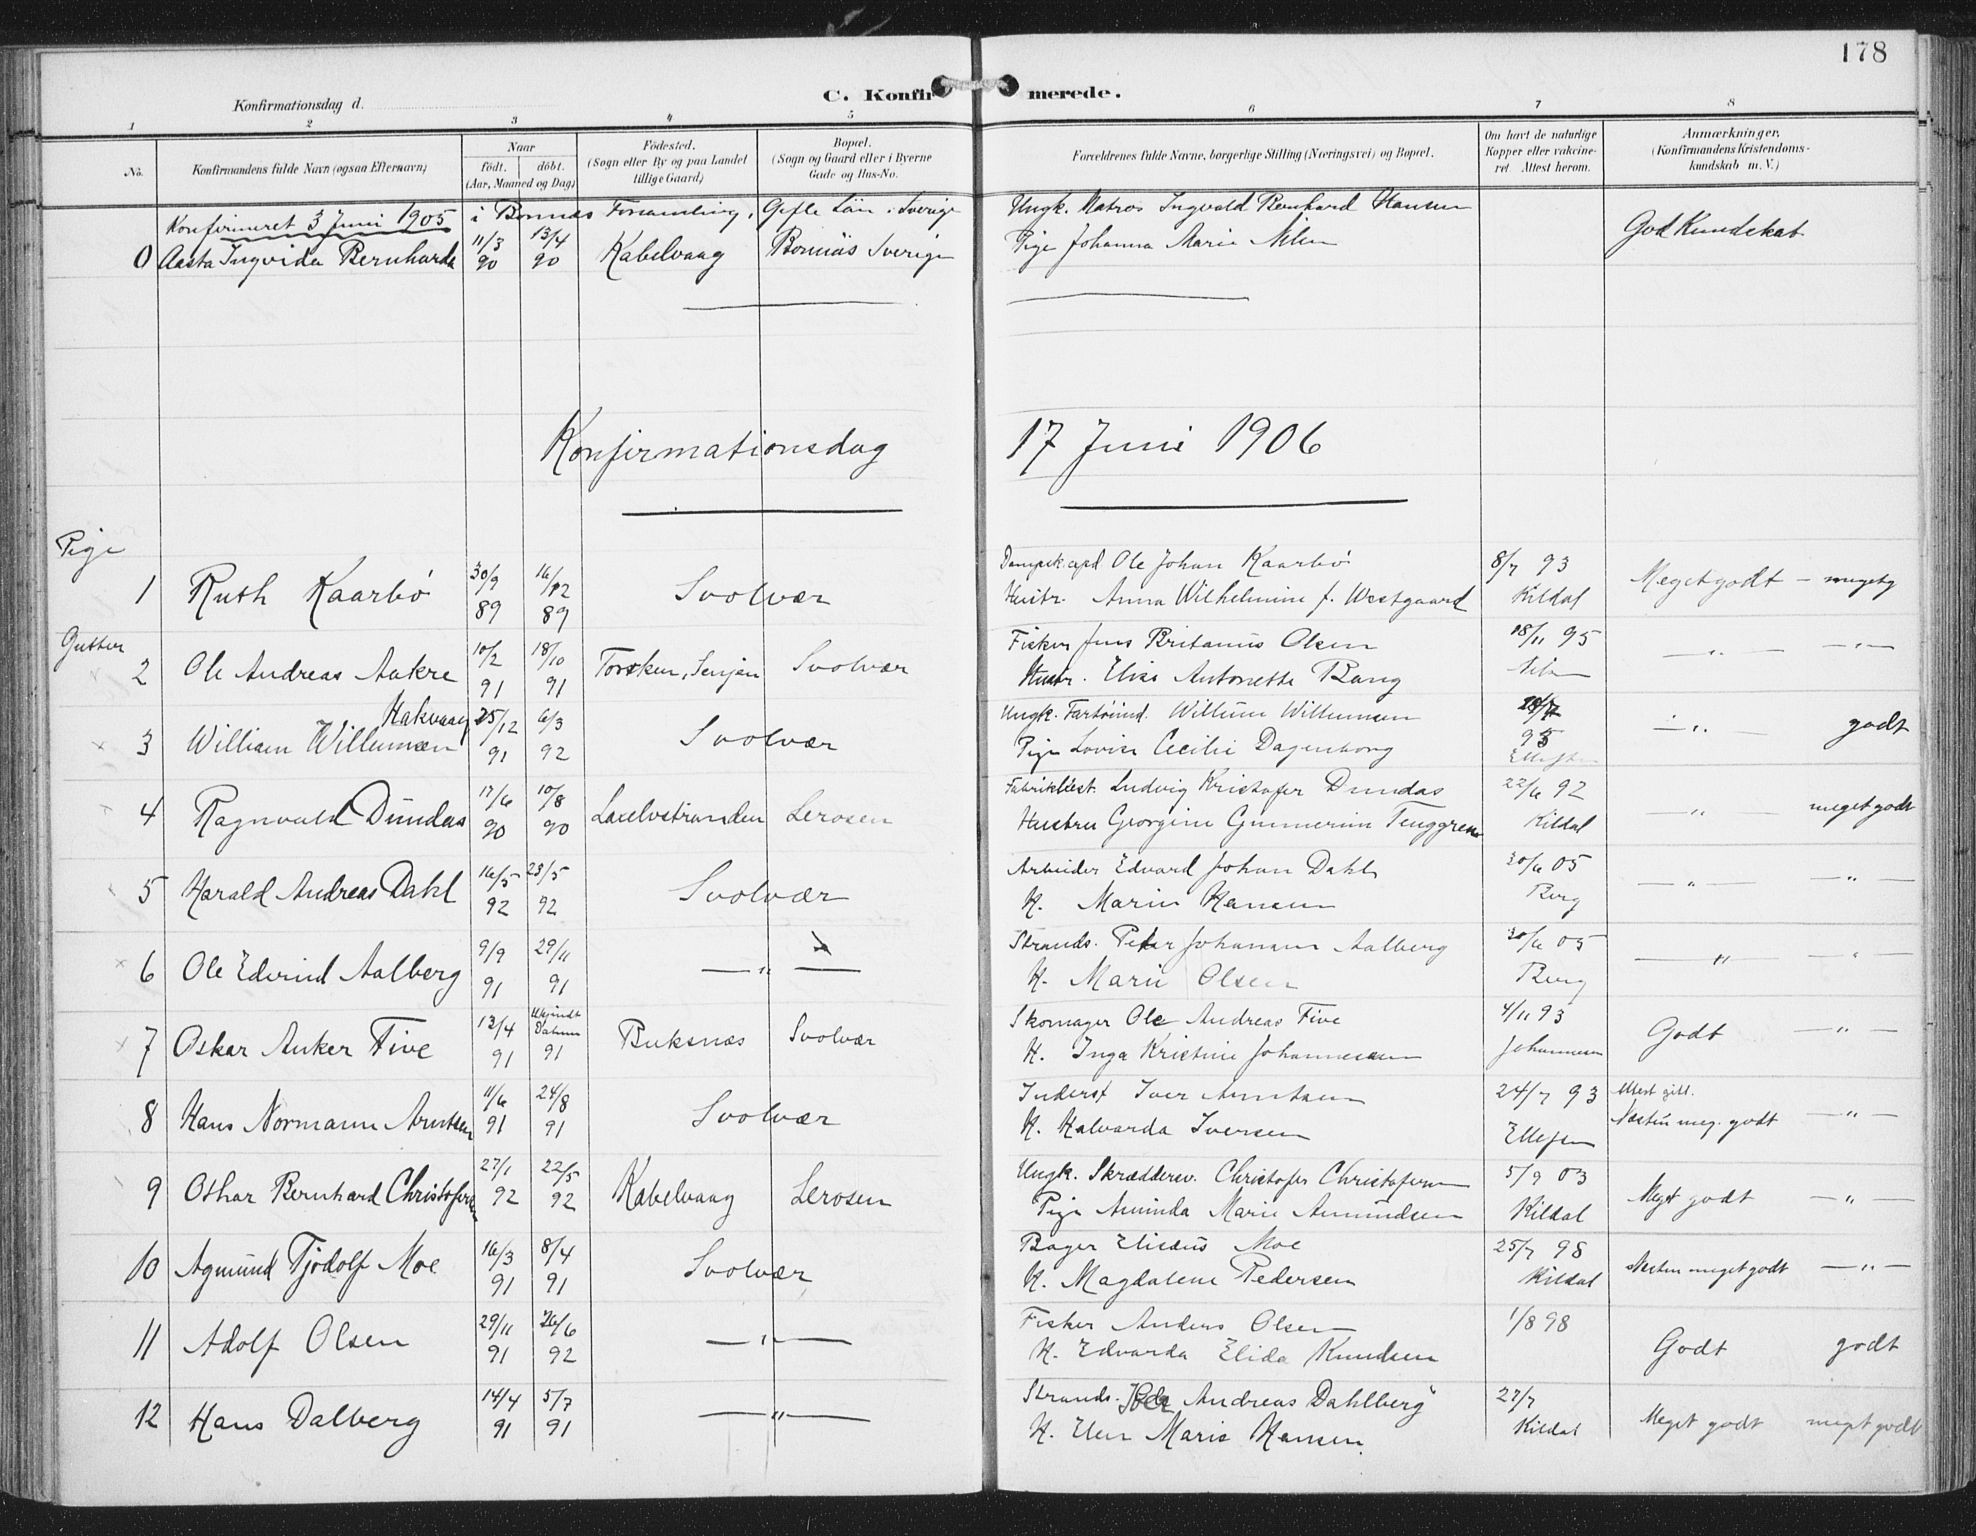 178
C. Konfirmerede.
Konfirmationsdag d.
1 2 3 4 5 6 7 8
No. Konfirmandens fulde Navn (ogsaa Efternavn) Naar født. døbt. (Aar, Maaned og Dag)
Fødested. (Sogn eller By og paa Landet tillige Gaard)
Bopæl. (Sogn og Gaard eller i Byerne Gade og Hus-No.
Forældrenes fulde Navne, borgerlige Stilling (Næringsvei) og Bopæl.
Om havt de naturlige Kopper eller vakcineret Attest herom.
Anmærkninger. (Konfirmandens Kristendomskundskab m. V.)
Konfirmeret 3 Juni 1905 i Bomnæs Forsamling, Gefle Län i Sverige Ungk. Matros Ingvald Bernhard Hansen
0 Aasta Ingvida Bernharda 11/3 90 13/4 90 Kabelvaag Bomnäs Sverige Pige Johanna Marie Nilsen God Kundskab
Konfirmationsdag 17 Juni 1906
Pige
1 Ruth Kaarbø 30/9 89 16/12 89 Svolvær
Dampsk.exped Ole Johan Kaarbø 8/7 93
Hustr. Anna Wilhelmine f. Westgaard Kildal Meget godt - megetg
Gutter
2 Ole Andreas Aakre 10/2 91 18/10 91 Torsken, Senjen Svolvær
Fisker Jens Britanus Olsen 18/11 95
Hustr. Elise Antonette Bang — „ — — „ —
Hakvaag
3 William Willumsen 25/12 91 6/3 92 Svolvær
Ungk. Willum Willumsen
Pige Lovise Cecilie Dagenborg 95 — „ — godt
4 Ragnvald Dundas 17/6 90 10/8 90 Laxelvstranden Lerosen
Ludvig Kristofer Dundas 22/6 92
Hustru Georgine Gunnerine Tenggren Kildal — „ — meget godt
5 Harald Andreas Dahl 16/5 92 23/5 92 Svolvær
Arbeider Edvard Johan Dahl 30/6 05
H. Marie Hansen Berg — „ — — „ —
6 Ole Edvind Aalberg 9/9 91 29/11 91 — „ —
Strands. Peter Johansen Aalberg 30/6 05
H. Marie Olsen Berg — „ — — „ —
7 Oskar Anker Five 13/4 91 Ukjendt Datum 91 Buksnæs Svolvær
Skomager Ole Andreas Five 4/11 93
H. Inga Kristine Johannesen Johannesen Godt — „ —
8 Hans Normann Arntsen 11/6 91 24/8 91 Svolvær
Inderst Iver Arntsen 24/7 93 Attest gitt.
H. Halvarda Iversen Ellefsen Næsten meg. godt — „ —
9 Othar Bernhard Christofersen 27/1 92 22/5 92 Kabelvaag Lerosen
Ungk. Skræddersv. Christofer Christofersen 5/9 03
Pige Aminda Marie Amundsen Kildal Meget godt — „ —
10 Agmund Tjodolf Moe 16/3 91 8/4 91 Svolvær
Bager Elisæus Moe 25/7 98
H. Magdalene Pedersen Kildal Næsten meget godt — „ —
11 Adolf Olsen 29/11 91 26/6 92 — „ —
Fisker Anders Olsen 1/8 98
H. Edvarda Elida Knudsen Godt godt
12 Hans Dalberg 14/4 91 5/7 91 — „ —
Strands. Peder Andreas Dahlberg 27/7
H. Elen Marie Hansen. Kildal Meget godt meget godt